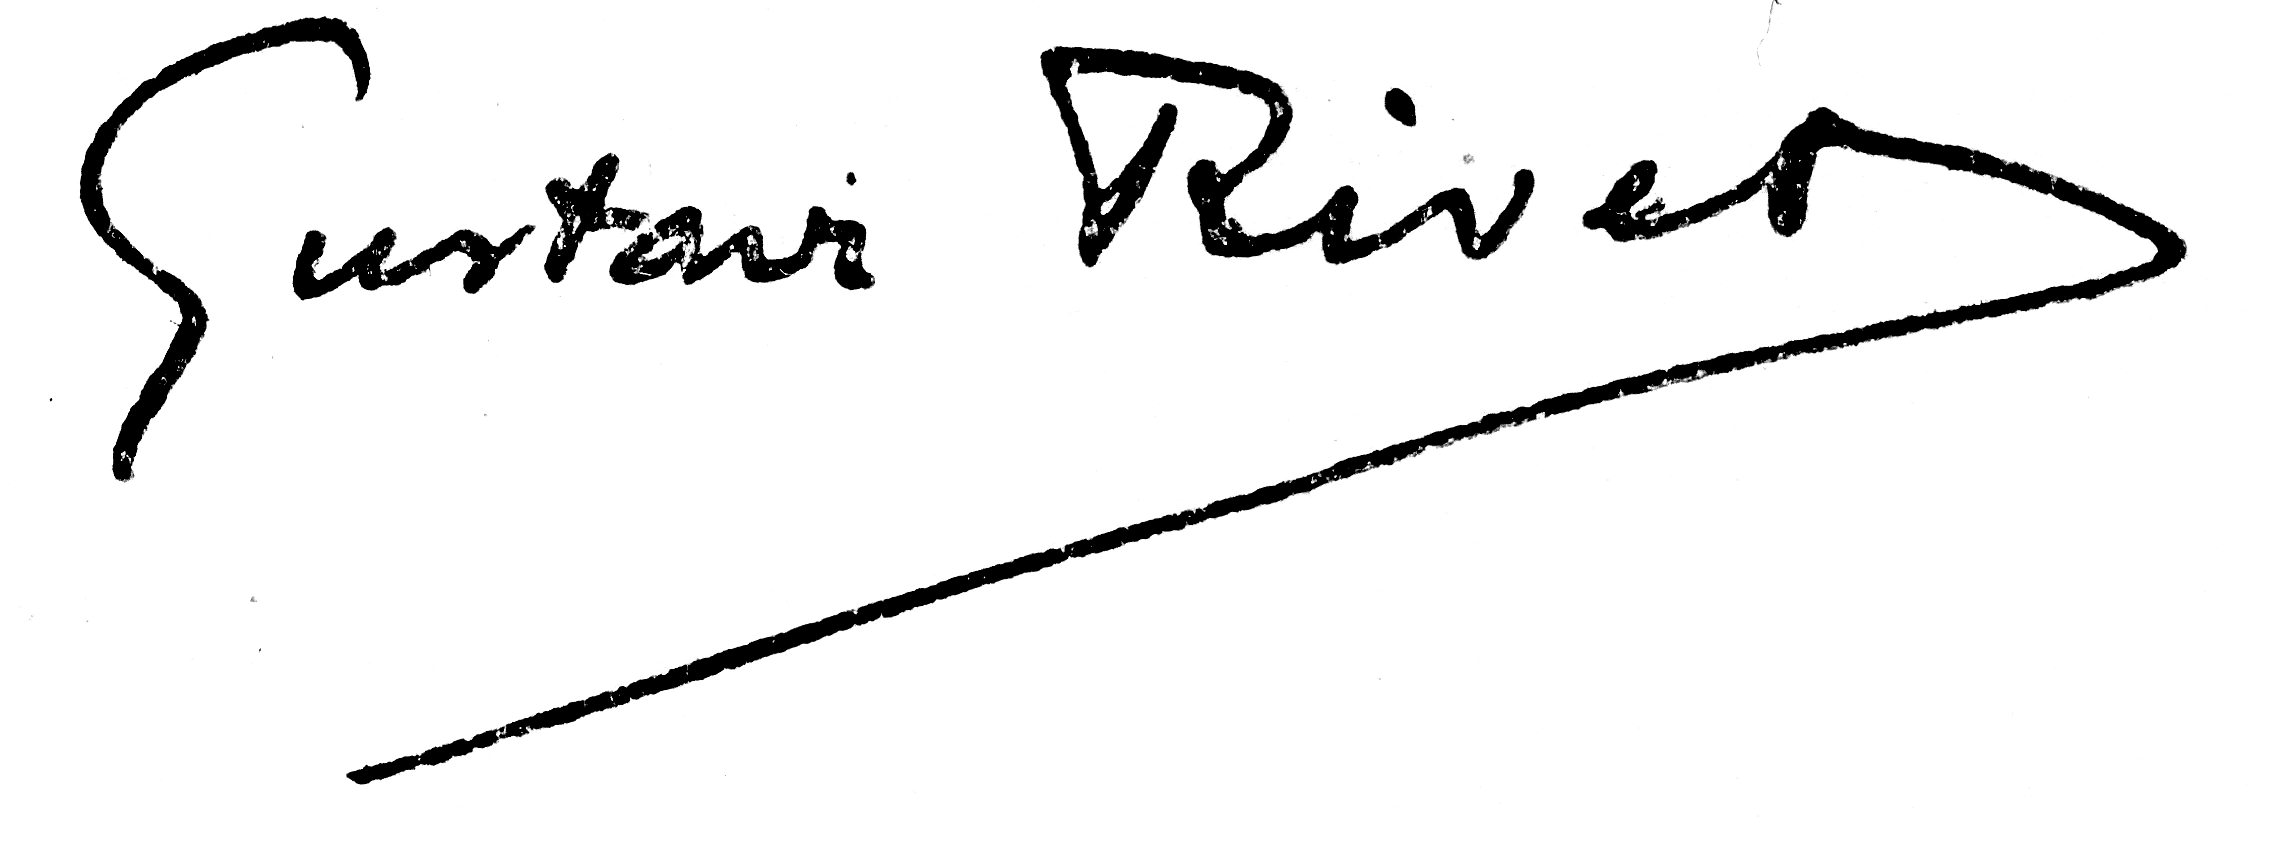 Gustave Rivet